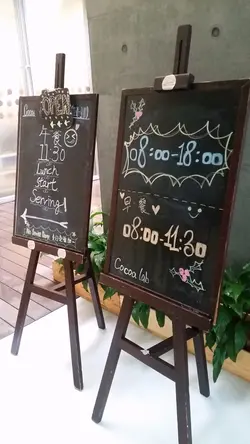 OPEN
午餐
11:30
Lunch
start
Serving!
08:00-18:00
早餐
08:00-11:30
Cocoa lab